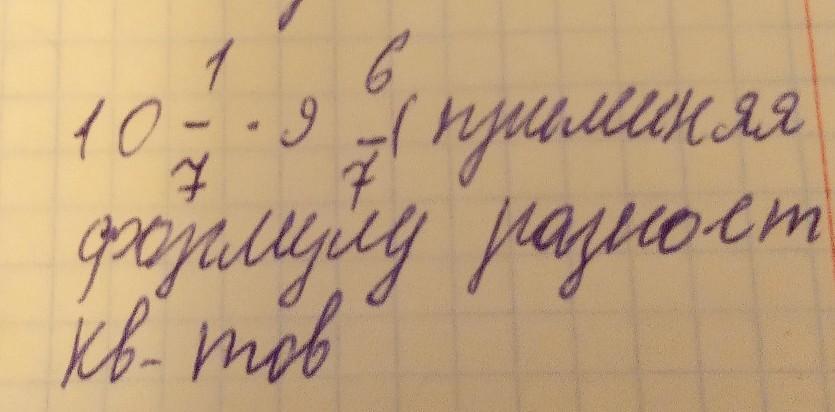 10 1/7 · 9 6/7 (применяя
формулу разност
кв-тов